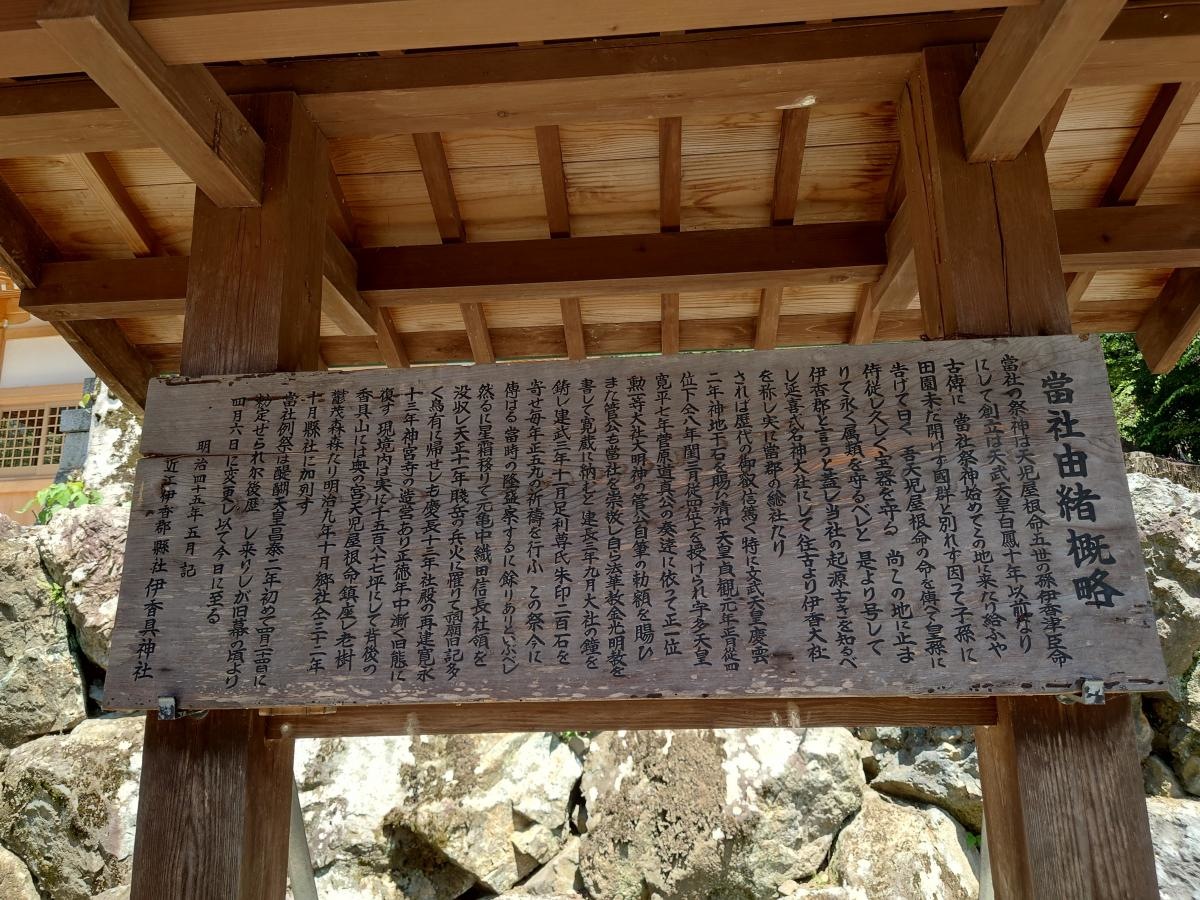 當社由緒概略
當社の祭神は天児屋根命五世の孫伊香津臣命
にして創立は天武天皇白鳳十年以前より
古傳に 當社祭神始めてこの地に来たり給ふや
田園未だ開けず國群と別れず因って子孫に
告げて曰く 吾天児屋根命の命を傳へ皇孫に
侍従し久しく宝器を守る 尚この地に止ま
りて永く属類を守るべしと 是より号して
伊香郡と言う 蓋し当社の起源古きを知るべ
し延喜式名神大社にして往古より伊香大社
を称し実に當郡の総社たり
されば歴代の御叡信篤く特に文武天皇慶雲
二年神地千石を賜い清和天皇貞観元年正月従四
位下仝八年閏三月従四位上を授けられ宇多天皇
寛平七年菅原道真公の奏達に依って正一位
勲一等大社大明神の菅公自筆の勅額を賜ひ
また菅公も当社を崇敬し自ら法華教金光明教を
書して寛蔵に納むと 連長三年九月大社の鐘を
鋳し建武二年十二月足利尊氏朱印二百石を
寄せ毎年正五九の祈祷を行ふ この祭今に
傳はる 當時の隆盛察するに餘りありと云ふべし
然るに星霜移りて元亀中織田信長社領を
没収し天正十一年賤岳の兵火に罹りて祠廟旧記多
く烏有に帰せしも慶長十三年社殿の再建寛永
十三年神宮寺の造営あり正徳年中漸く旧態に
復す 現境内は実に千五百八十七坪にして背後の
香具山には奥の宮天児屋根命鎮座し老樹
鬱茂森森たり明治九年十月郷社仝三十二年
十月縣社に加列す
当社例祭は醍醐天皇昌泰二年初めて
せられ尓後歴 し来りしが旧幕の頃より
四月六日に変更し以て今日に至る
明治四十五年五月 記
近江伊香郡縣社 伊香具神社